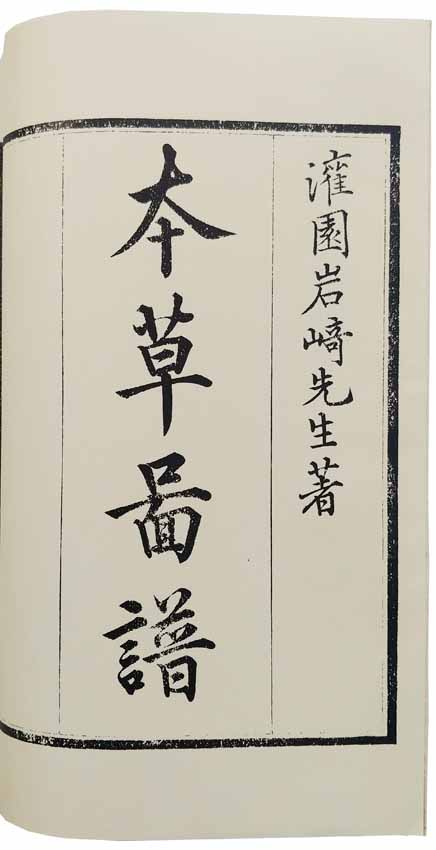 灌園岩﨑先生著
本草啚譜